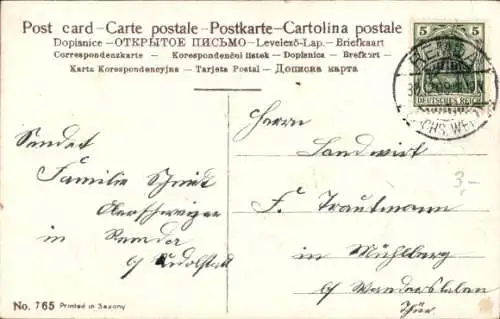 Post card – Carte postale – Postkarte – Cartolina postale
Dopisnice – ОТКРЫТОЕ ПИСЬМО – Levelező-Lap. – Briefkaart
Correspondenzkarte – Korespondenční listek – Dopisnica – Brefkort –
Karta Korespondencyjna – Tarjeta Postal – Дописна карта
5 5
DEUTSCHES REICH
Herrn
Landwirt
F. Trautmann
in Mühlberg
b/ Wandersleben
Thür.
3-
Sendet
Familie Schmidt
in Remda
b/ Rudolstadt
No. 765 Printed in Saxony